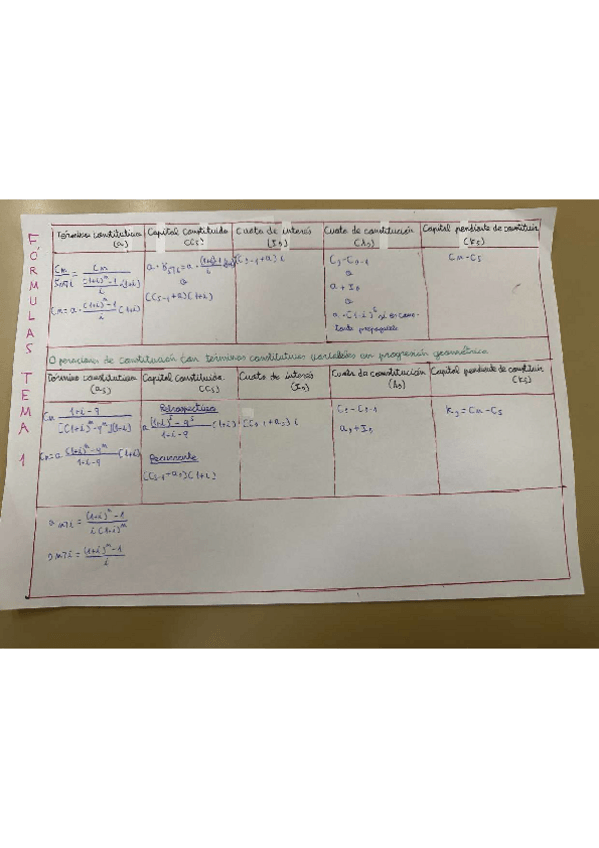 FÓRMULAS TEMA 1
Término constitutivo (a)
Capital Constituido (Cs)
Cuota de interés (Is)
Cuota de constitución (As)
Capital pendiente de constituir (Ks)
Cn / = Cn / ((1+i)^n - 1 / i · (1+i))
Cn = a · (1+i)^n - 1 / i · (1+i)
(Cs-1 + a)(1+i)
(Cs-1 + a) i
Cs - Cs-1
o
a + Is
Cn - Cs
Operaciones de constitución con términos constitutivos variables en progresión geométrica
Término constitutivo (as)
Capital constituido (Cs)
Cuota de interés (Is)
Cuota de constitución (As)
Capital pendiente de constituir (Ks)
Cn 1+i-q / [(1+i)^n - q^n](1+i)
Cn = a (1+i)^n - q^n / 1+i-q (1+i)
Retrospectivo
a (1+i)^s - q^s / 1+i-q (1+i)
Recurrente
(Cs-1 + as)(1+i)
(Cs-1 + as) i
Cs - Cs-1
as + Is
Ks = Cn - Cs
a n¬i = (1+i)^n - 1 / i (1+i)^n
s n¬i = (1+i)^n - 1 / i